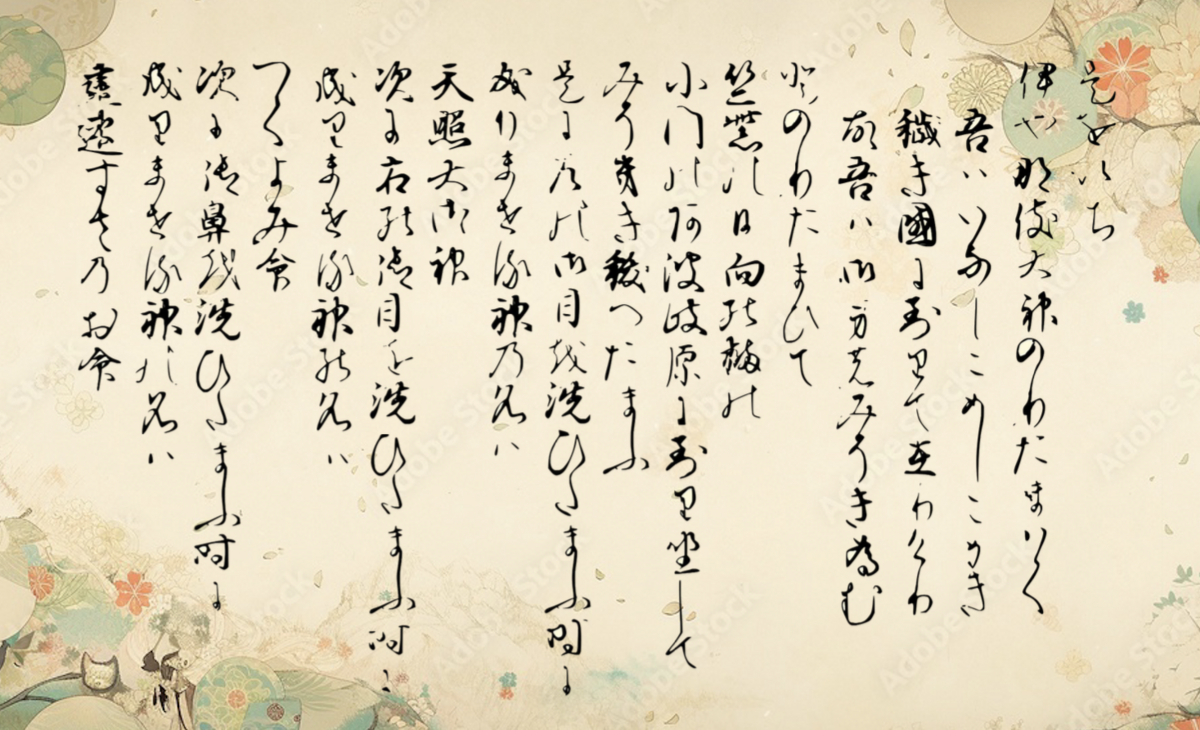 是を以ち
伊や那伎大神のりたまはく
吾はいなしこめしこめき
穢き國に到りて在りけり
故吾は御身のみそき為む
とのりたまひて
竺紫の日向の橘の
小門の阿波岐原に到り坐して
みそき祓へたまふ
是に左の御目を洗ひたまふ時に
成りませる神の名は
天照大御神
次に右の御目を洗ひたまふ時に
成りませる神の名は
つくよみ命
次に御鼻を洗ひたまふ時に
成りませる神の名は
建速すさのお命
Adobe Stock